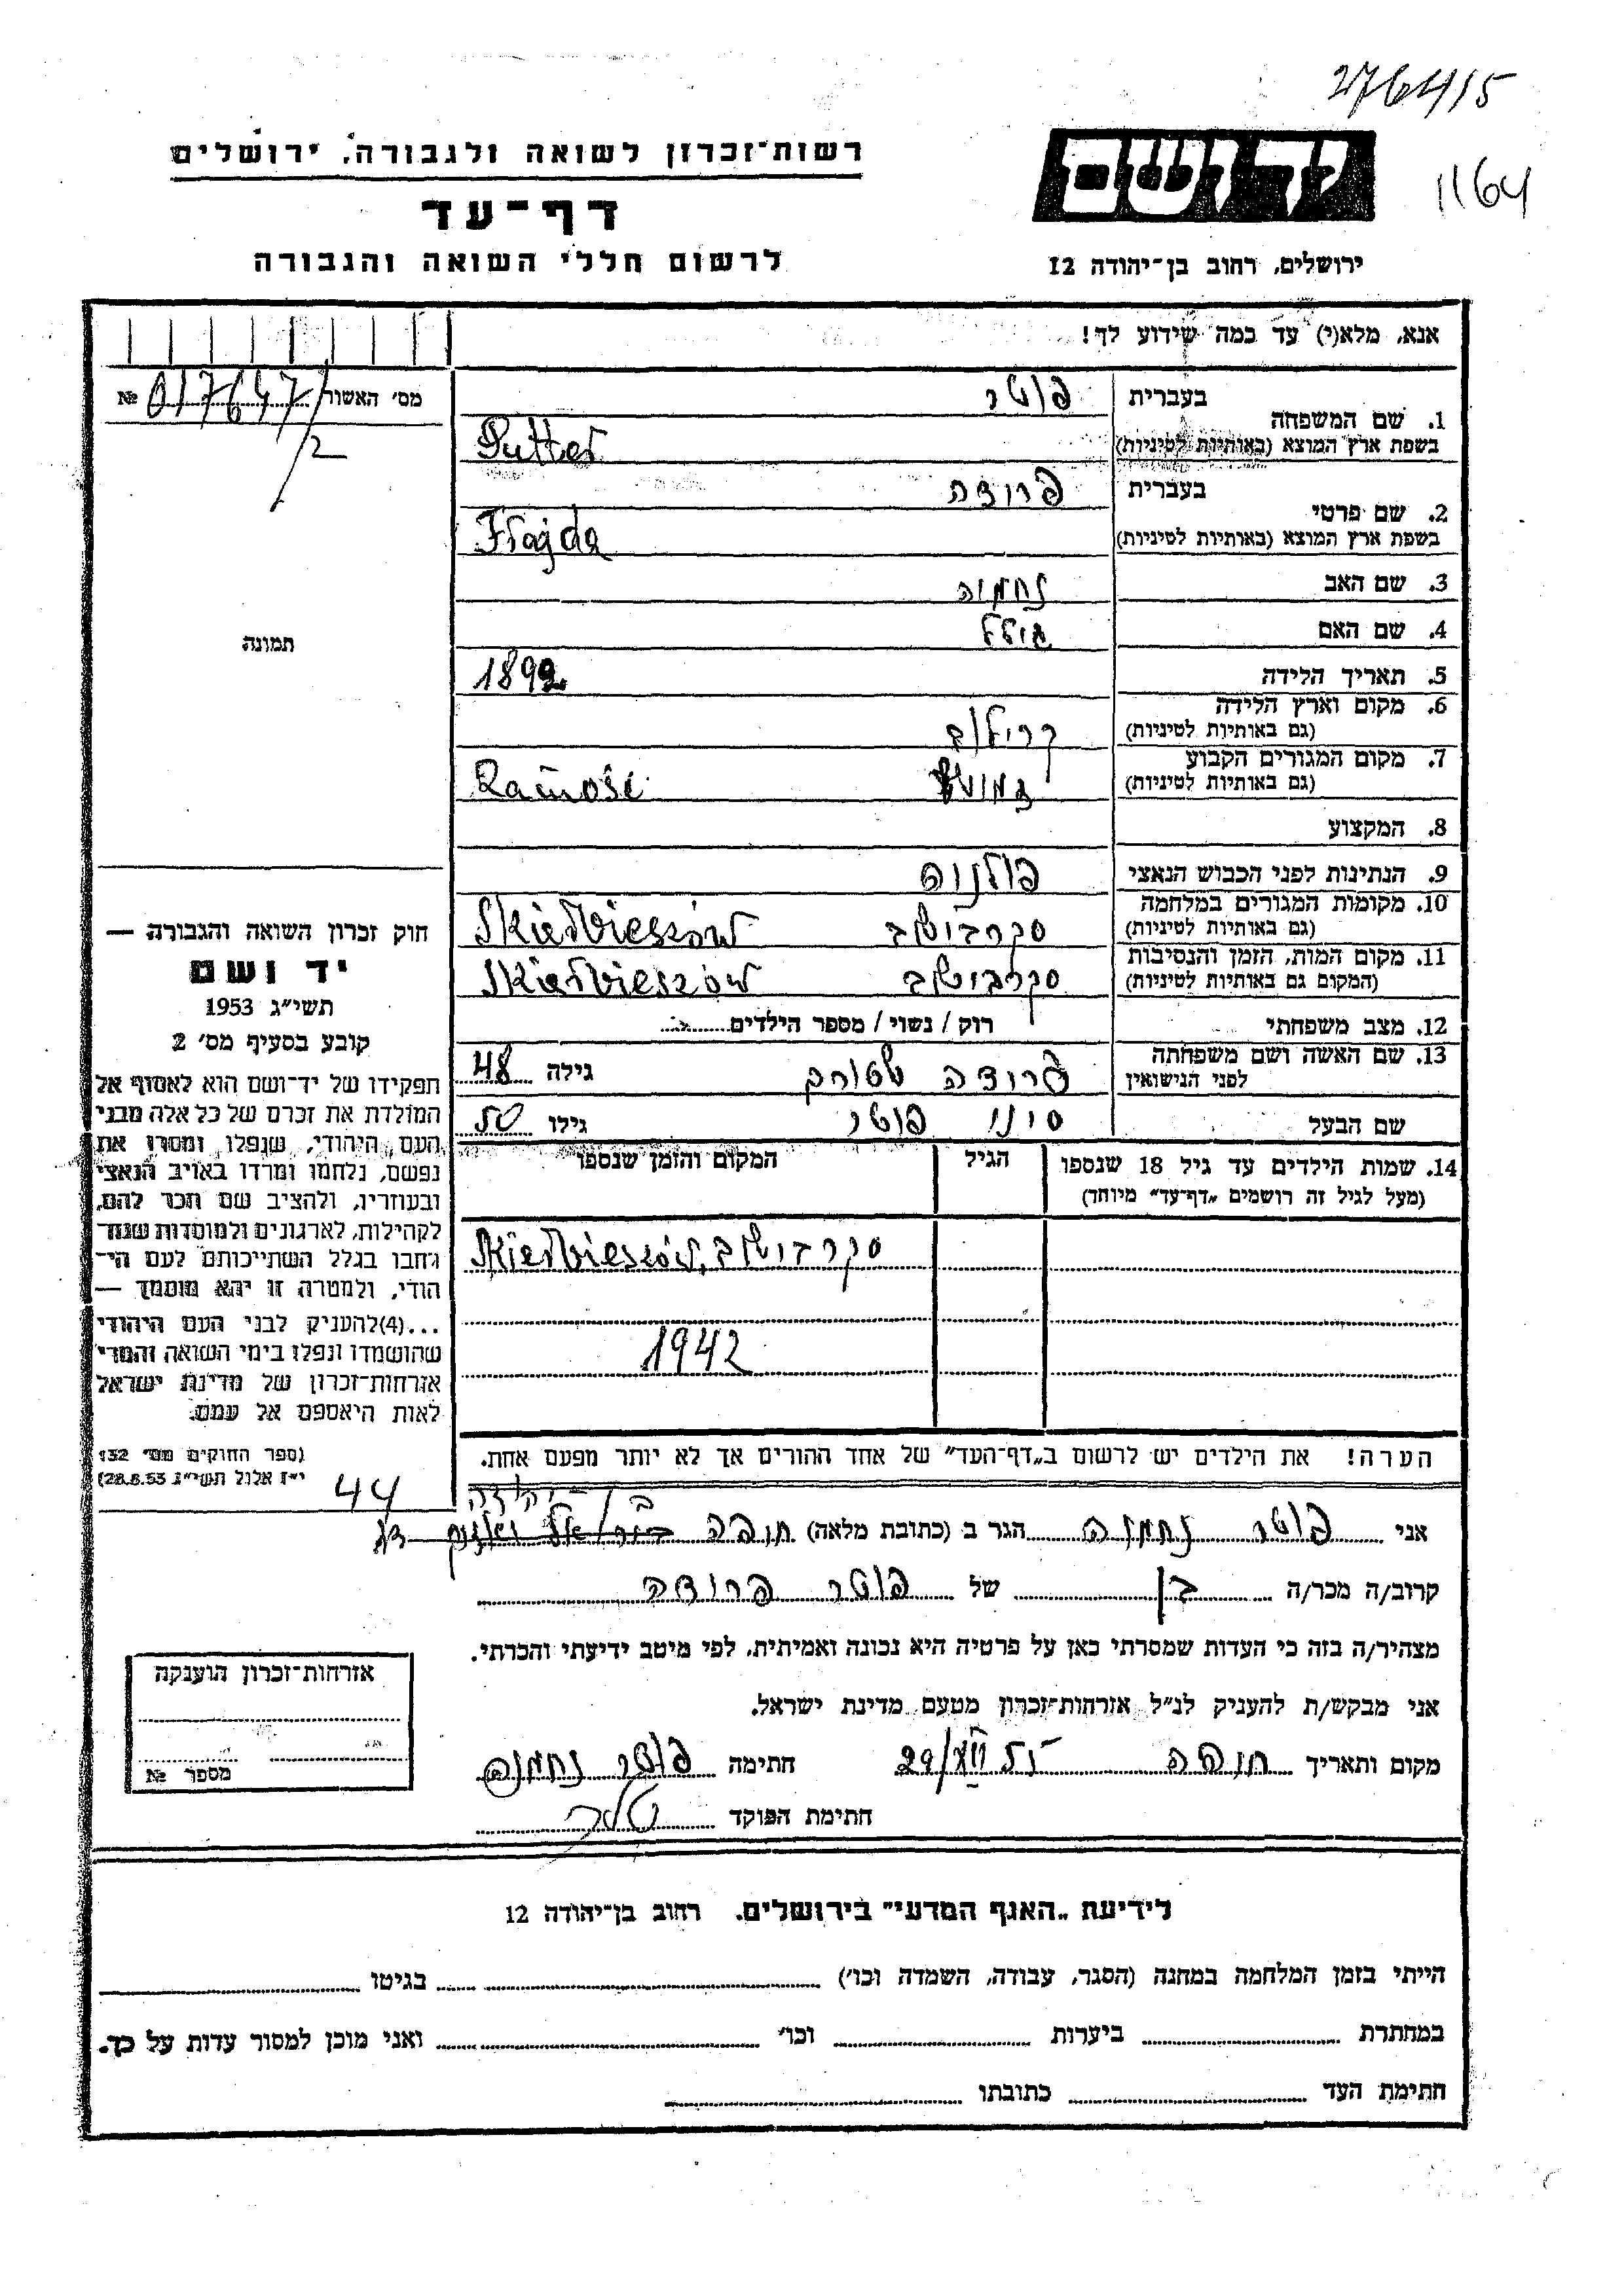 276415
רשות־זכרון לשואה ולגבורה, ירושלים
יד ושם
1164
דף־עד
לרשום חללי השואה והגבורה
ירושלים, רחוב בן־יהודה 12
אנא, מלא(י) עד כמה שידוע לך!
מס' האשור № 017647/2
1. שם המשפחה בעברית פוטר
בשפת ארץ המוצא (באותיות לטיניות) Putter
2. שם פרטי בעברית פריידה
בשפת ארץ המוצא (באותיות לטיניות) Frajda
3. שם האב נחמיה
4. שם האם
5. תאריך הלידה 1892
6. מקום וארץ הלידה (גם באותיות לטיניות) קרילוב
7. מקום המגורים הקבוע (גם באותיות לטיניות) זמושץ Zamość
8. המקצוע
9. הנתינות לפני הכבוש הנאצי פולניה
10. מקומות המגורים במלחמה (גם באותיות לטיניות) סקרבישוב Skierbieszów
11. מקום המות, הזמן והנסיבות (המקום גם באותיות לטיניות) סקרבישוב Skierbieszów
12. מצב משפחתי רוק / נשוי / מספר הילדים
13. שם האשה ושם משפחתה לפני הנישואין פרידה שטורם גילה 48
שם הבעל סיני פוטר גילו 50
14. שמות הילדים עד גיל 18 שנספו (מעל לגיל זה רושמים „דף־עד" מיוחד) הגיל המקום והזמן שנספו
סקרבישוב, Skierbieszów
1942
הערה! את הילדים יש לרשום ב„דף־העד" של אחד ההורים אך לא יותר מפעם אחת.
תמונה
חוק זכרון השואה והגבורה —
יד ושם
תשי"ג 1953
קובע בסעיף מס' 2
תפקידו של יד־ושם הוא לאסוף אל
המולדת את זכרם של כל אלה מבני
העם היהודי, שנפלו ומסרו את
נפשם, נלחמו ומרדו באויב הנאצי
ובעוזריו, ולהציב שם וזכר להם,
לקהילות, לארגונים ולמוסדות שנח־
רבו בגלל השתייכותם לעם הי־
הודי, ולמטרה זו יהא מוסמך —
...(4)להעניק לבני העם היהודי
שהושמדו ונפלו בימי השואה והמרי
אזרחות־זכרון של מדינת ישראל
לאות היאספם אל עמם.
(ספר החוקים מס' 132
י"ז אלול תשי"ג 28.8.53)
44
בן־יהודה
אני פוטר נחמיה הגר ב (כתובת מלאה) חיפה
קרוב/ה מכר/ה בן של פוטר פרידה
מצהיר/ה בזה כי העדות שמסרתי כאן על פרטיה היא נכונה ואמיתית, לפי מיטב ידיעתי והכרתי.
אני מבקש/ת להעניק לנ"ל אזרחות־זכרון מטעם מדינת ישראל.
מקום ותאריך חיפה 29/XII 55 חתימה פוטר נחמיה
חתימת הפוקד
אזרחות־זכרון הוענקה
מספר №
לידיעת „האגף המדעי" בירושלים, רחוב בן־יהודה 12
הייתי בזמן המלחמה במחנה (הסגר, עבודה, השמדה וכו') בגיטו
במחתרת ביערות וכו' ואני מוכן למסור עדות על כך.
חתימת העד כתובתו